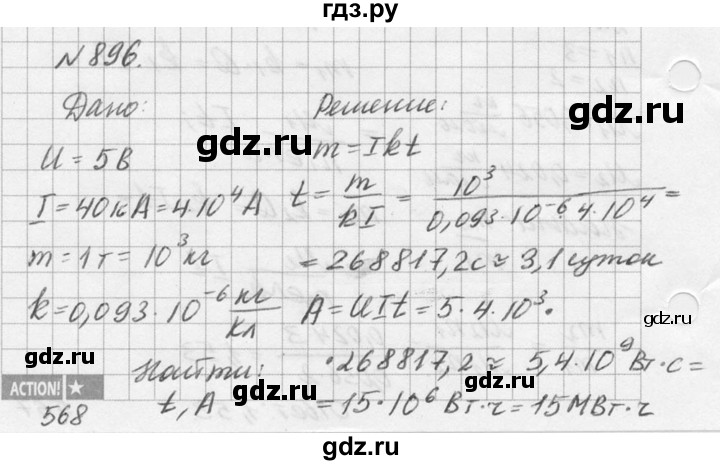 гдз.ру
N896.
Дано:
U = 5В
I = 40кА = 4·10⁴А
m = 1т = 10³кг
k = 0,093·10⁻⁶ кг/Кл
Найти:
t, A
Решение:
m = Ikt
t = m/kI = 10³/0,093·10⁻⁶·4·10⁴ =
= 268817,2с ≈ 3,1 суток
A = UIt = 5·4·10³·
·268817,2 ≈ 5,4·10⁹Вт·с =
= 15·10⁶ Вт·ч = 15МВт·ч
ACTION!
568
gdz.ru
gdz.ru
gdz.ru
gdz.ru
gdz.ru
gdz.ru
gdz.ru
gdz.ru
gdz.ru
gdz.ru